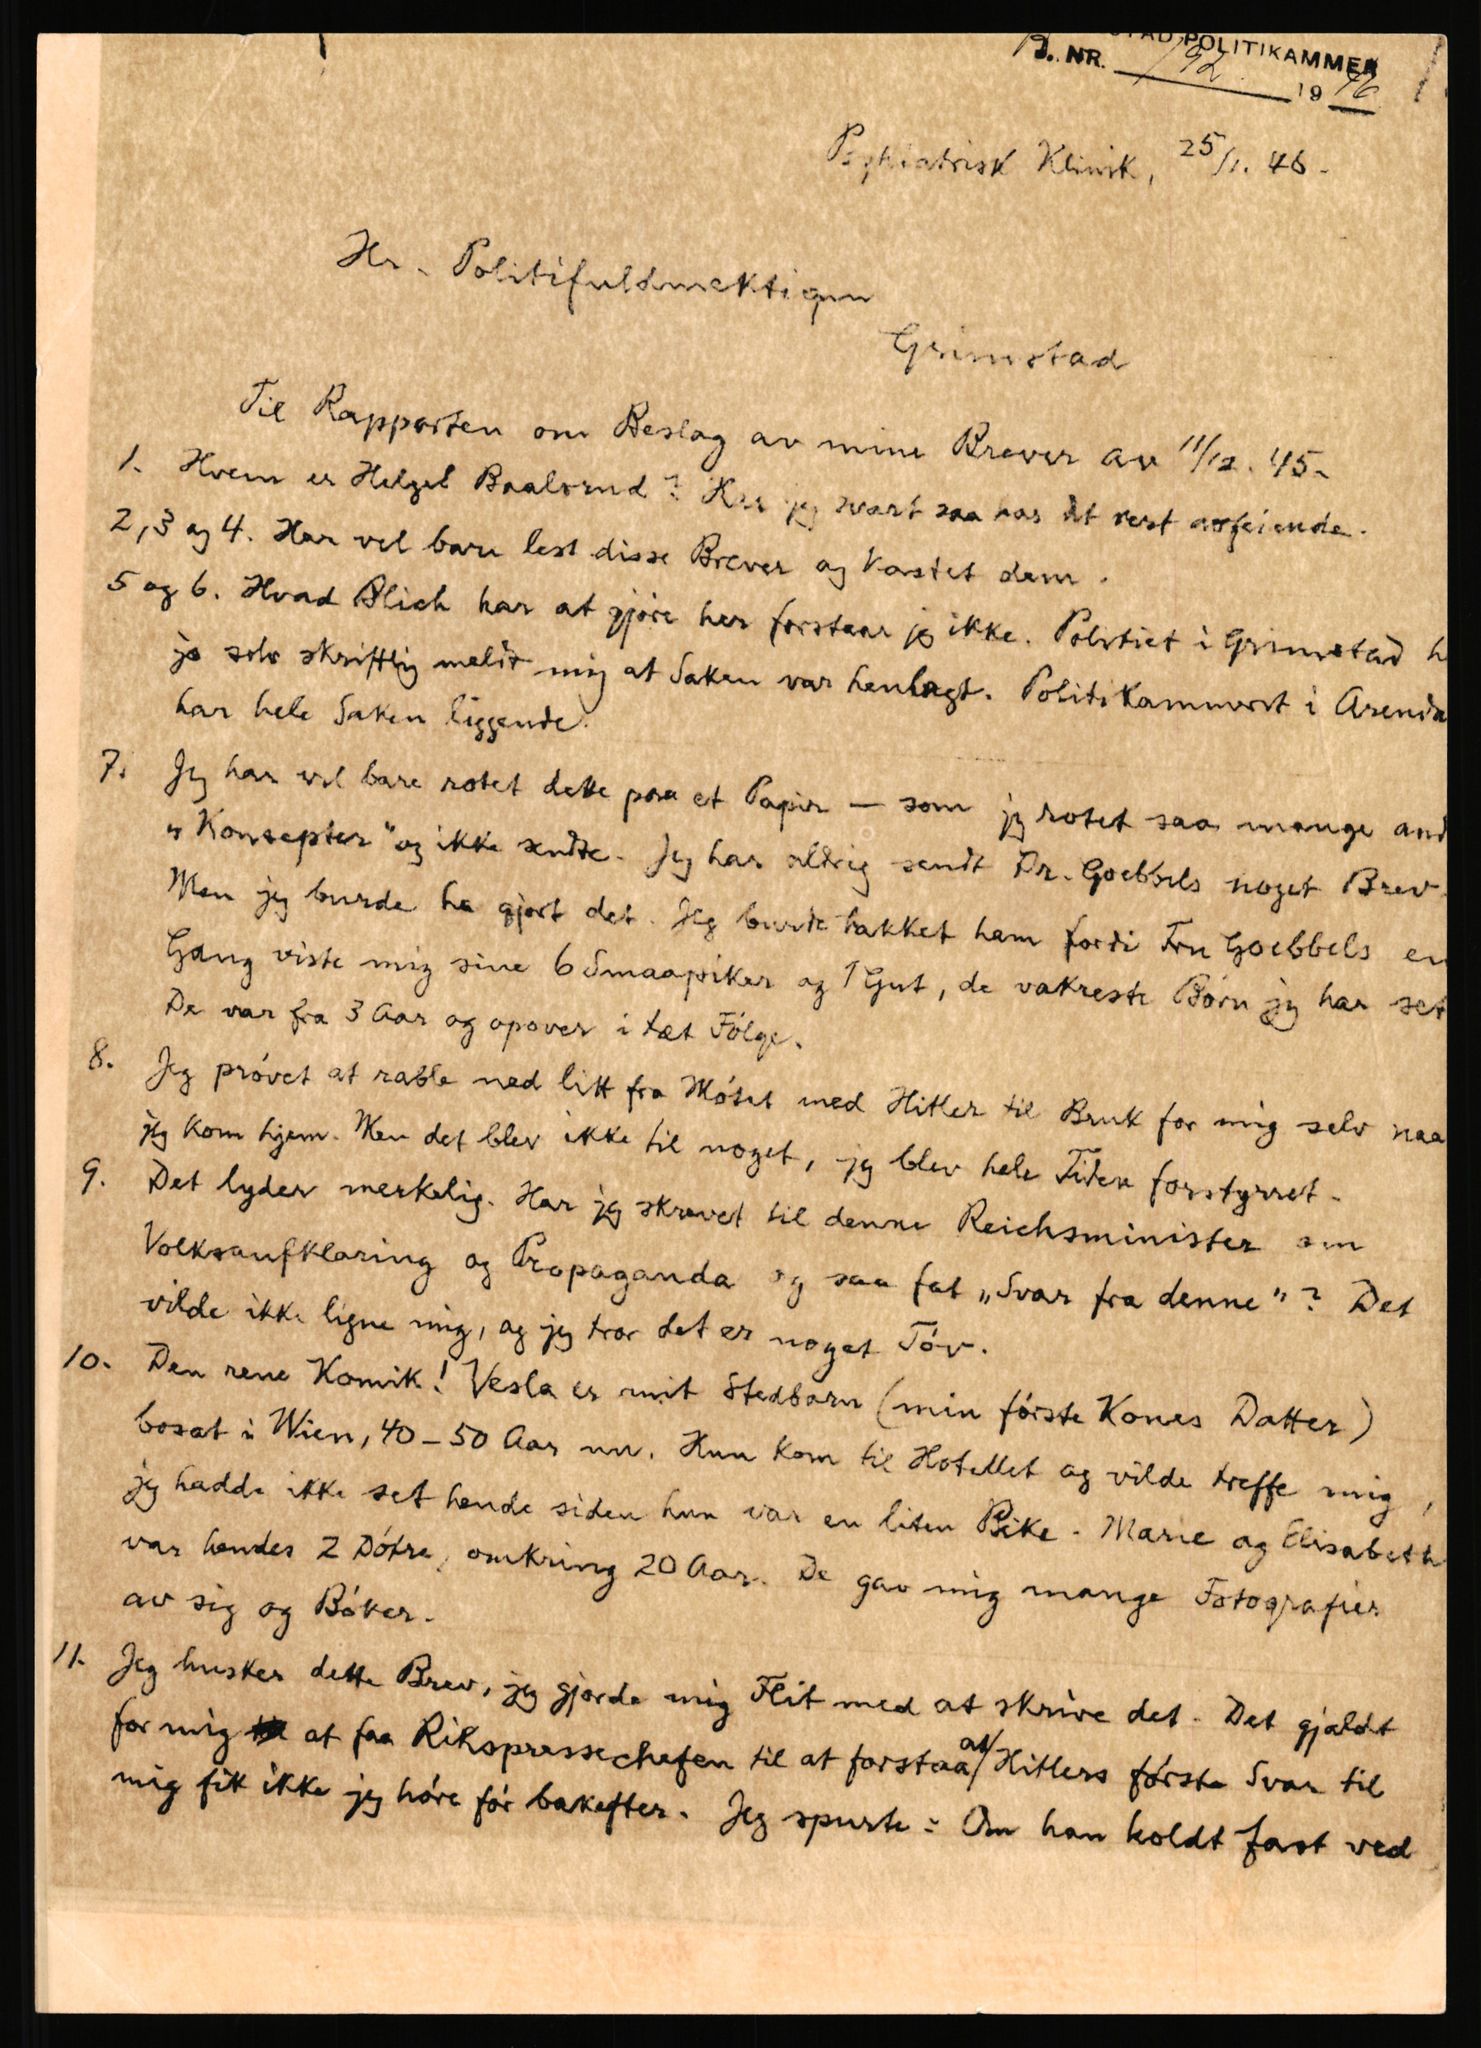 STAD POLITIKAMMER
B. NR. 192 1946
Psykiatrisk Klinik, 25/1. 46.
Hr. Politifuldmektigen
Grimstad
Til Rapporten om Beslag av mine Brever av 11/12. 45.
1. Hvem er Helgel Baalsrud? Har jeg svart saa har det vert avfeiende.
2, 3 og 4. Har vel bare lest disse Brever og kastet dem.
5 og 6. Hvad Blich har at gjøre her forstaar jeg ikke. Politiet i Grimstad h
jo selv skriftlig meldt mig at Saken var henlagt. Politikammeret i Arenda
har hele Saken liggende.
7. Jeg har vel bare rotet dette paa et Papir — som jeg rotet saa mange and
"Konsepter" og ikke sendte. Jeg har aldrig sendt Dr. Goebbels noget Brev.
Men jeg burde ha gjort det. Jeg burde takket ham fordi Fru Goebbels en
Gang viste mig sine 6 Smaapiker og 1 Gut, de vakreste Børn jeg har set
De var fra 3 Aar og opover i tæt Følge.
8. Jeg prøvet at rable ned litt fra Møtet med Hitler til Bruk for mig selv naa
jeg kom hjem. Men det blev ikke til noget, jeg blev hele Tiden forstyrret.
9. Det lyder merkelig. Har jeg skrevet til denne Reichsminister om
Volksaufklaring og Propaganda og saa fat „Svar fra denne"? Det
vilde ikke ligne mig, og jeg tror det er noget Tøv.
10. Den rene Komik! Vesla er mit Stedbarn (min første Kones Datter)
bosat i Wien, 40–50 Aar nu. Hun kom til Hotellet og vilde treffe mig,
jeg hadde ikke set hende siden hun var en liten Pike. Marie og Elisabeth
var hendes 2 Døtre, omkring 20 Aar. De gav mig mange Fotografier
av sig og Bøker.
11. Jeg husker dette Brev, jeg gjorde mig Flit med at skrive det. Det gjaldt
for mig at faa Rikspressechefen til at forstaa at Hitlers første Svar til
mig fik ikke jeg høre før bakefter. Jeg spurte: Om han holdt fast ved